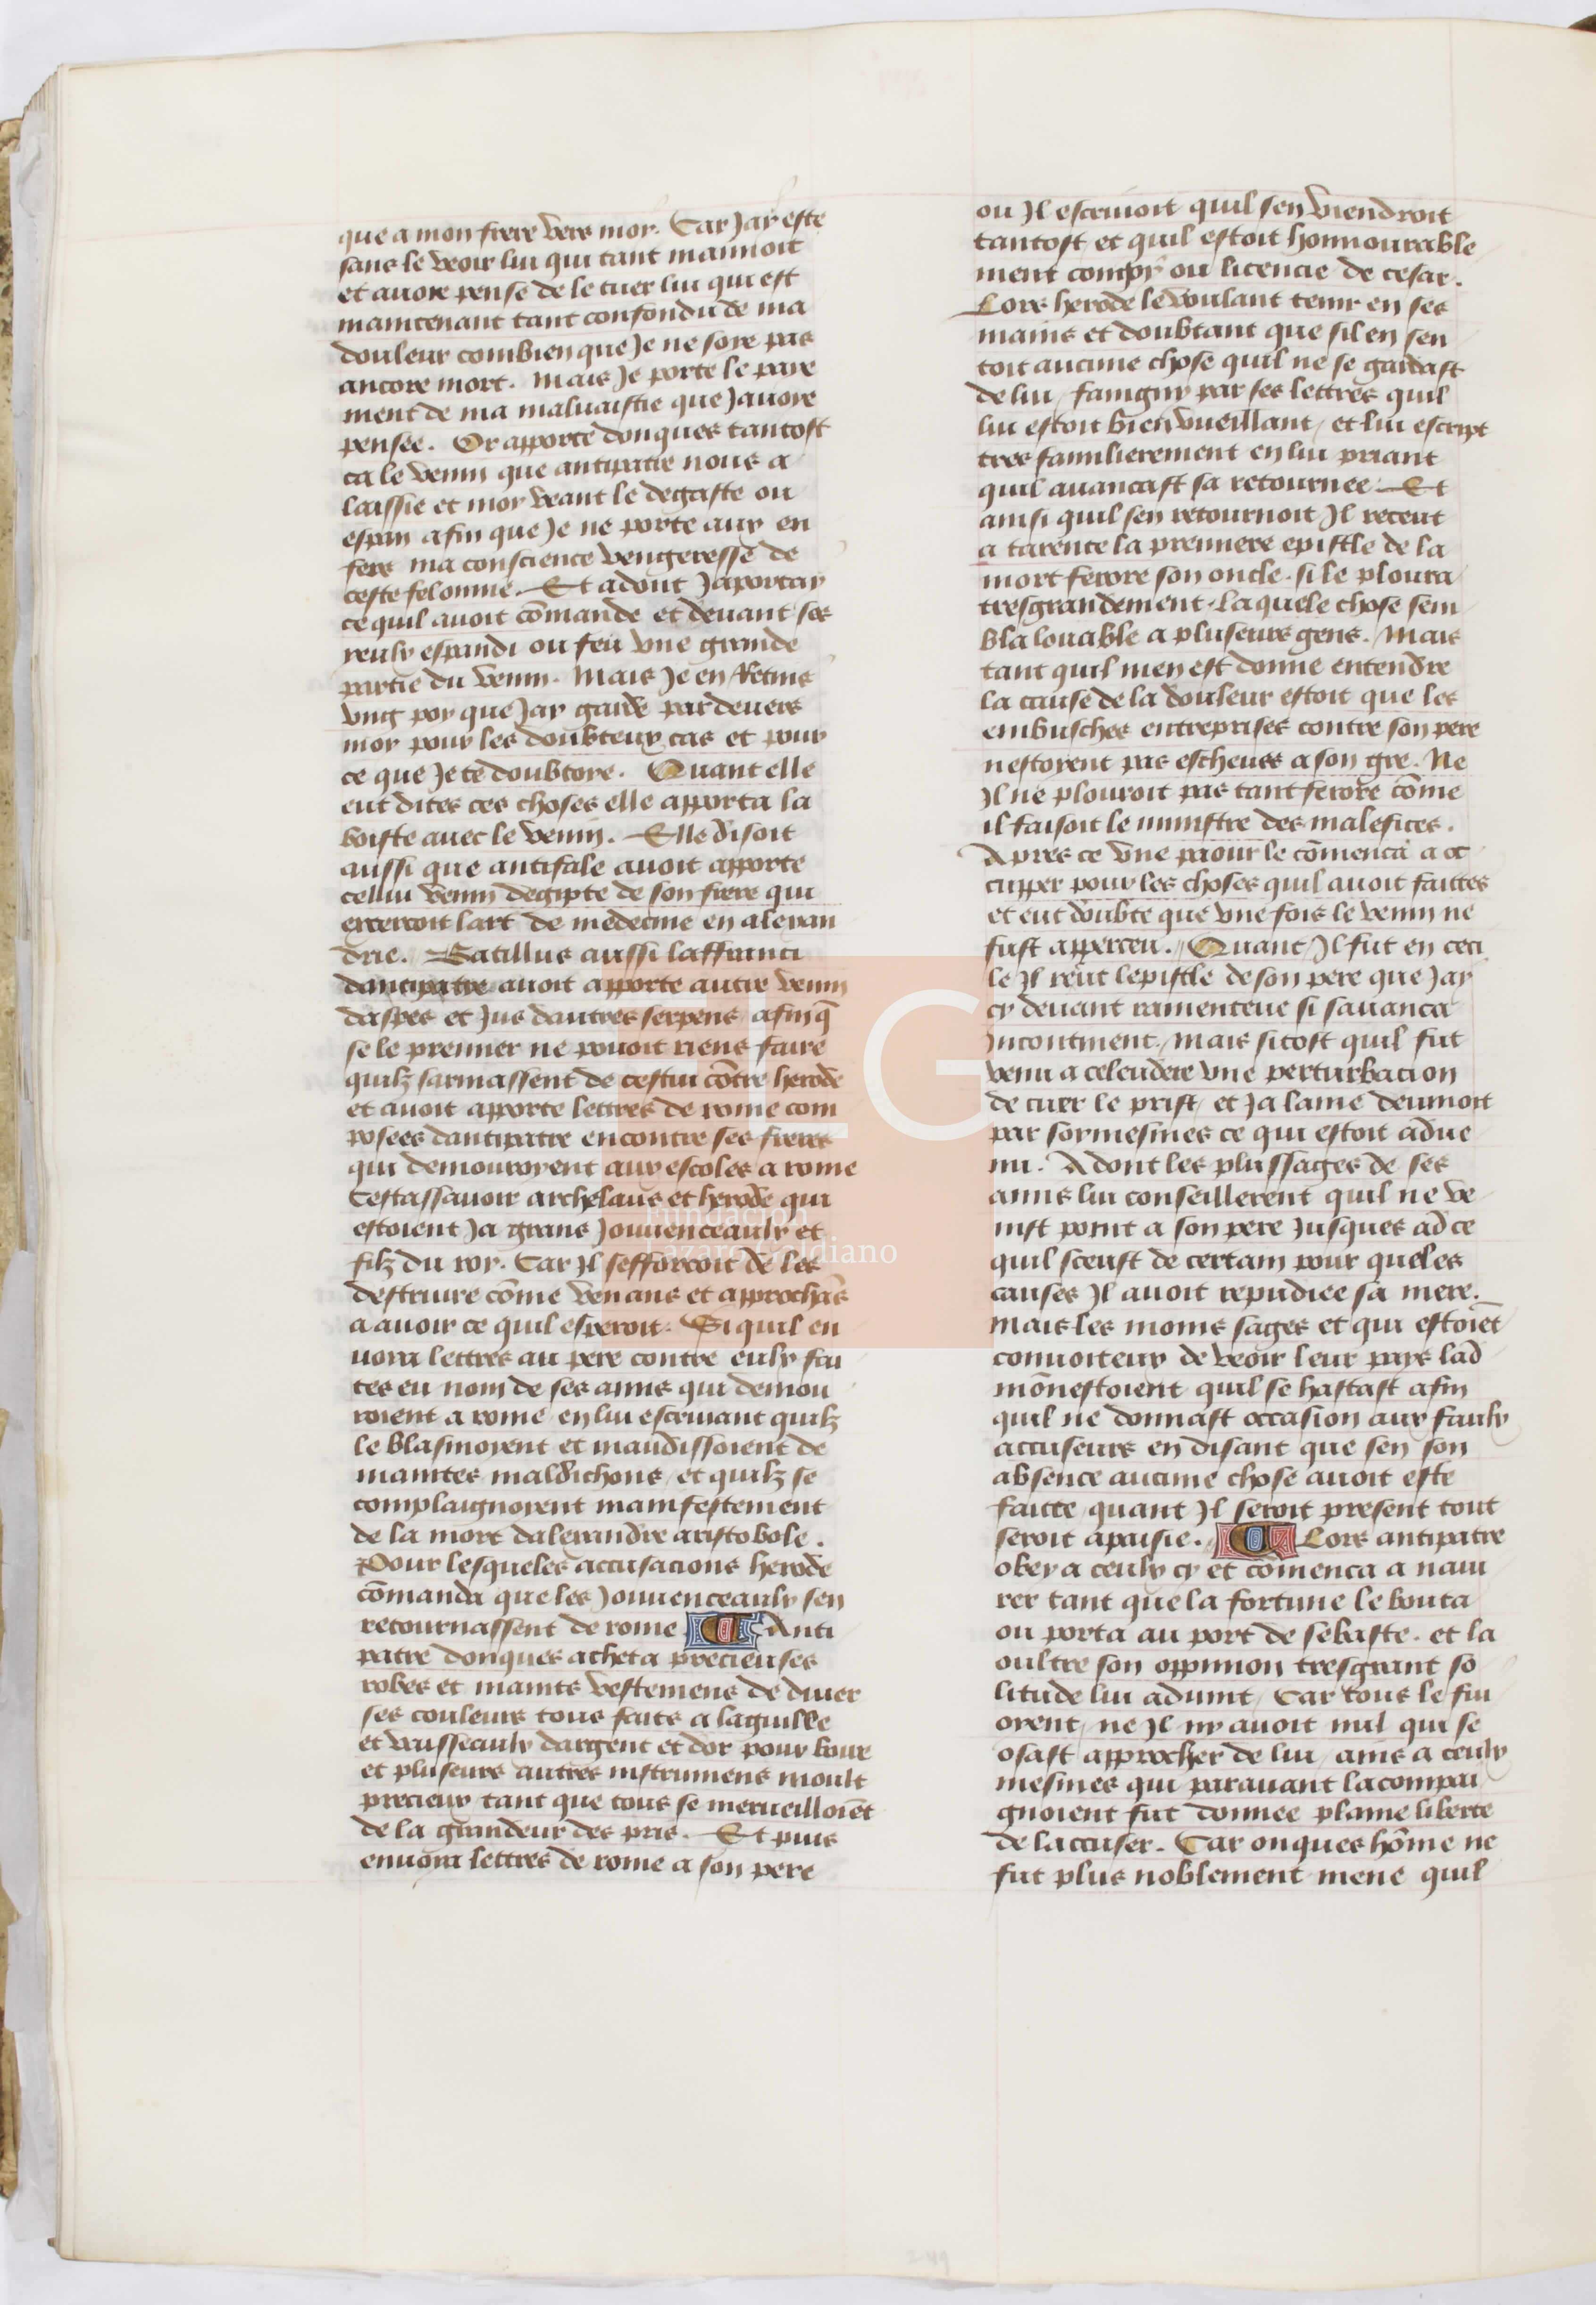 que a mon frere vers moy. Car Jay este
sans le veoir lui qui tant mamoit
et auoie pense de le tuer lui qui est
maintenant tant confondu de ma
douleur combien que Je ne soye pas
ancore mort. Mais Je porte le paie
ment de ma maluaistie que Jauoye
pensee. Or apporte donques tantost
ca le venin que antipatre nous a
laissie et moy veant le degaste ou
espan afin que Je ne porte aux en
fers ma conscience vengeresse de
ceste felonnie. Et adont Japortay
ce quil auoit cōmande et deuant ses
yeulx espandi ou feu vne grande
partie du venin. Mais Je en Retins
vng poy que Jay garde par deuers
moy pour les doubteux cas et pour
ce que Je te doubtoye. Quant elle
eut dites ces choses elle apporta la
boiste auec le venin. Elle disoit
aussi que antifale auoit apporte
cellui venin degipte de son frere qui
excercoit lart de medecine en alexan
drie. Batillus aussi laffranci
dantipatre auoit apporte autre venin
daspes et Jus dautres serpens afin q̄
se le premier ne pouoit riens faire
quilz sarmassent de cestui cōtre herode
et auoit aporte lettres de rome com
posees dantipatre encontre ses freres
qui demouroyent aux escoles a rome
Cestassauoir archelaus et herode qui
estoient Ja grans Jouuenceaulx et
filz du roy. Car Jl sefforcoit de les
destruire cōme venans et approchās
a auoir ce quil esperoit. Si quil en
uoia lettres au pere contre eulx fai
tes eu nom de ses amis qui demou
roient a rome en lui escriuant quilz
le blasmoyent et maudissoient de
maintes maldichons et quilz se
complaignoyent manifestement
de la mort dalexandre aristobole.
Pour lesqueles accusacions herode
cōmanda que les Jouuenceaulx sen
retournassent de rome Anti
patre donques acheta precieuses
robes et maints vestemens de diuer
ses couleurs tous faits a laguille
et vaisseaulx dargent et dor pour boire
et pluseurs autres instrumens moult
precieux tant que tous se merueilloiēt
de la grandeur des pris. Et puis
enuoya lettres de rome a son pere
ou Jl escriuoit quil sen viendroit
tantost et quil estoit honnourable
ment ou licencie de cesar.
Lors herode le voulant tenir en ses
mains et doubtant que sil en sen
toit aucune chose quil ne se gardast
de lui faingny par ses lettres quil
lui estoit bien vueillant et lui escript
tres familierement en lui priant
quil auancast sa retournee Et
ainsi quil sen retournoit Jl receut
a tarente la premiere epistle de la
mort ferore son oncle. si le ploura
tresgrandement. laquele chose sem
bla louable a pluseurs gens. Mais
tant quil men est donne entendre
la cause de la douleur estoit que les
embusches entreprises contre son pere
nestoyent pas escheues a son gre. Ne
Jl ne plouroit pas tant ferore cōme
il faisoit le ministre des malefices.
Apres ce vne paour le cōmenca a oc
cupper pour les choses quil auoit faittes
et eut doubte que vne fois le venin ne
fust apperceu. Quant Jl fut en ceci
le Jl reut lepistle de son pere que Jay
cy deuant ramenteue si sauanca
Jncontinent. Mais sitost quil fut
venu a celendere vne perturbacion
de cuer le prist et Ja lame deuinoit
par soymesmes ce qui estoit adue
nu. Adont les plus sages de ses
amis lui conseillerent quil ne ve
nist point a son pere Jusques ad ce
quil sceust de certain pour queles
causes Jl auoit repudiee sa mere.
Mais les moins sages et qui estoiēt
conuoiteux de veoir leur pays lad
mōnestoient quil se hastast afin
quil ne donnast occasion aux faulx
accuseurs en disant que sen son
absence aucune chose auoit este
faitte quant Jl seroit present tout
seroit apaisie. Lors antipatre
obey a ceulx cy et cōmenca a naui
rer tant que la fortune le bouta
ou porta au port de sebaste. et la
oultre son oppinion tresgrant so
litude lui aduint. Car tous le fui
oyent ne Jl ny auoit nul qui se
osast approcher de lui ains a ceulx
mesmes qui parauant lacompai
gnoient fut donnee plaine liberte
de laccuser. Car onques hōme ne
fut plus noblement mene quil
FLG
Fundación
Lázaro Galdiano